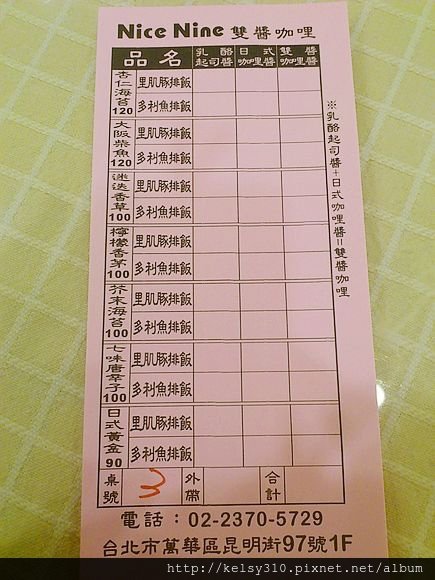 Nice Nine 雙醬咖哩
品名 乳酪起司醬 日式咖哩醬 雙醬咖哩
杏仁海苔 120
里肌豚排飯
多利魚排飯
大阪柴魚 120
里肌豚排飯
多利魚排飯
迷迭香草 100
里肌豚排飯
多利魚排飯
檸檬香茅 100
里肌豚排飯
多利魚排飯
芥末海苔 100
里肌豚排飯
多利魚排飯
七味唐辛子 100
里肌豚排飯
多利魚排飯
日式黃金 90
里肌豚排飯
多利魚排飯
※乳酪起司醬+日式咖哩醬=雙醬咖哩
桌號 3 外帶 合計
電話：02-2370-5729
台北市萬華區昆明街97號1F
http://kelsy310.pixnet.net/album